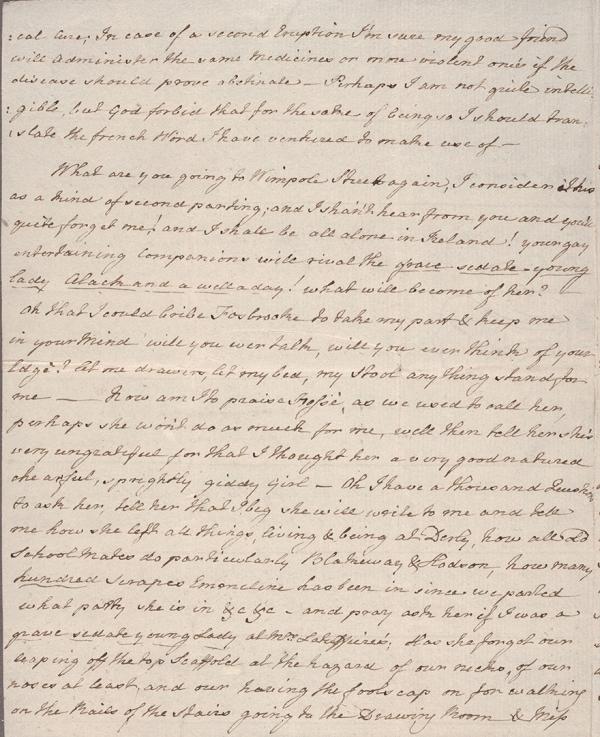 :cal cure; In case of a second Eruption I'm sure my good friend
will administer the same medicines or more violent ones if the
disease should prove obstinate — Perhaps I am not quite intelli
:gible, but God forbid that for the sake of being so I should tran:
:slate the french Word I have ventured to make use of —
What are you going to Wimpole Street again, I consider this
as a kind of second parting; and I shan't hear from you and you'll
quite forget me! and I shall be all alone in Ireland! your gay
entertaining Companions will rival the grave sedate young
lady Alack and a well a day! what will become of her?
Oh that I could bribe Fosbrooke to take my part & keep me
in your mind will you ever talk, will you ever think of your
Edge? let me drawers, let my bed, my Stool any thing stand for
me — how am I to praise , as we used to call her,
perhaps she won't do as much for me, well then tell her she's
very ungrateful, for that I thought her a very good natured
chearful, sprightly giddy Girl — Oh I have a thousand Questions
to ask her, tell her that I beg she will write to me and tell
me how she left all things, living & being at Derby, how all
School Mates do particularly Blakeway & Hodson, how many
hundred Scrapes Emmeline has been in since we parted
what party she is in &c &c — and pray ask her if I was a
grave sedate young Lady at Mrs Lataffieres; Has she forgot our
leaping off the top Scaffold at the hazard of our necks, of our
noses at least, and our having the fools cap on for walking
on the Rails of the Stairs going to the Drawing Room & Miss